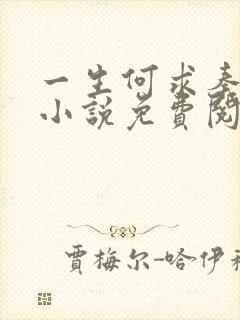 一生何求奏
小說免費閱
賈梅尔-哈伊